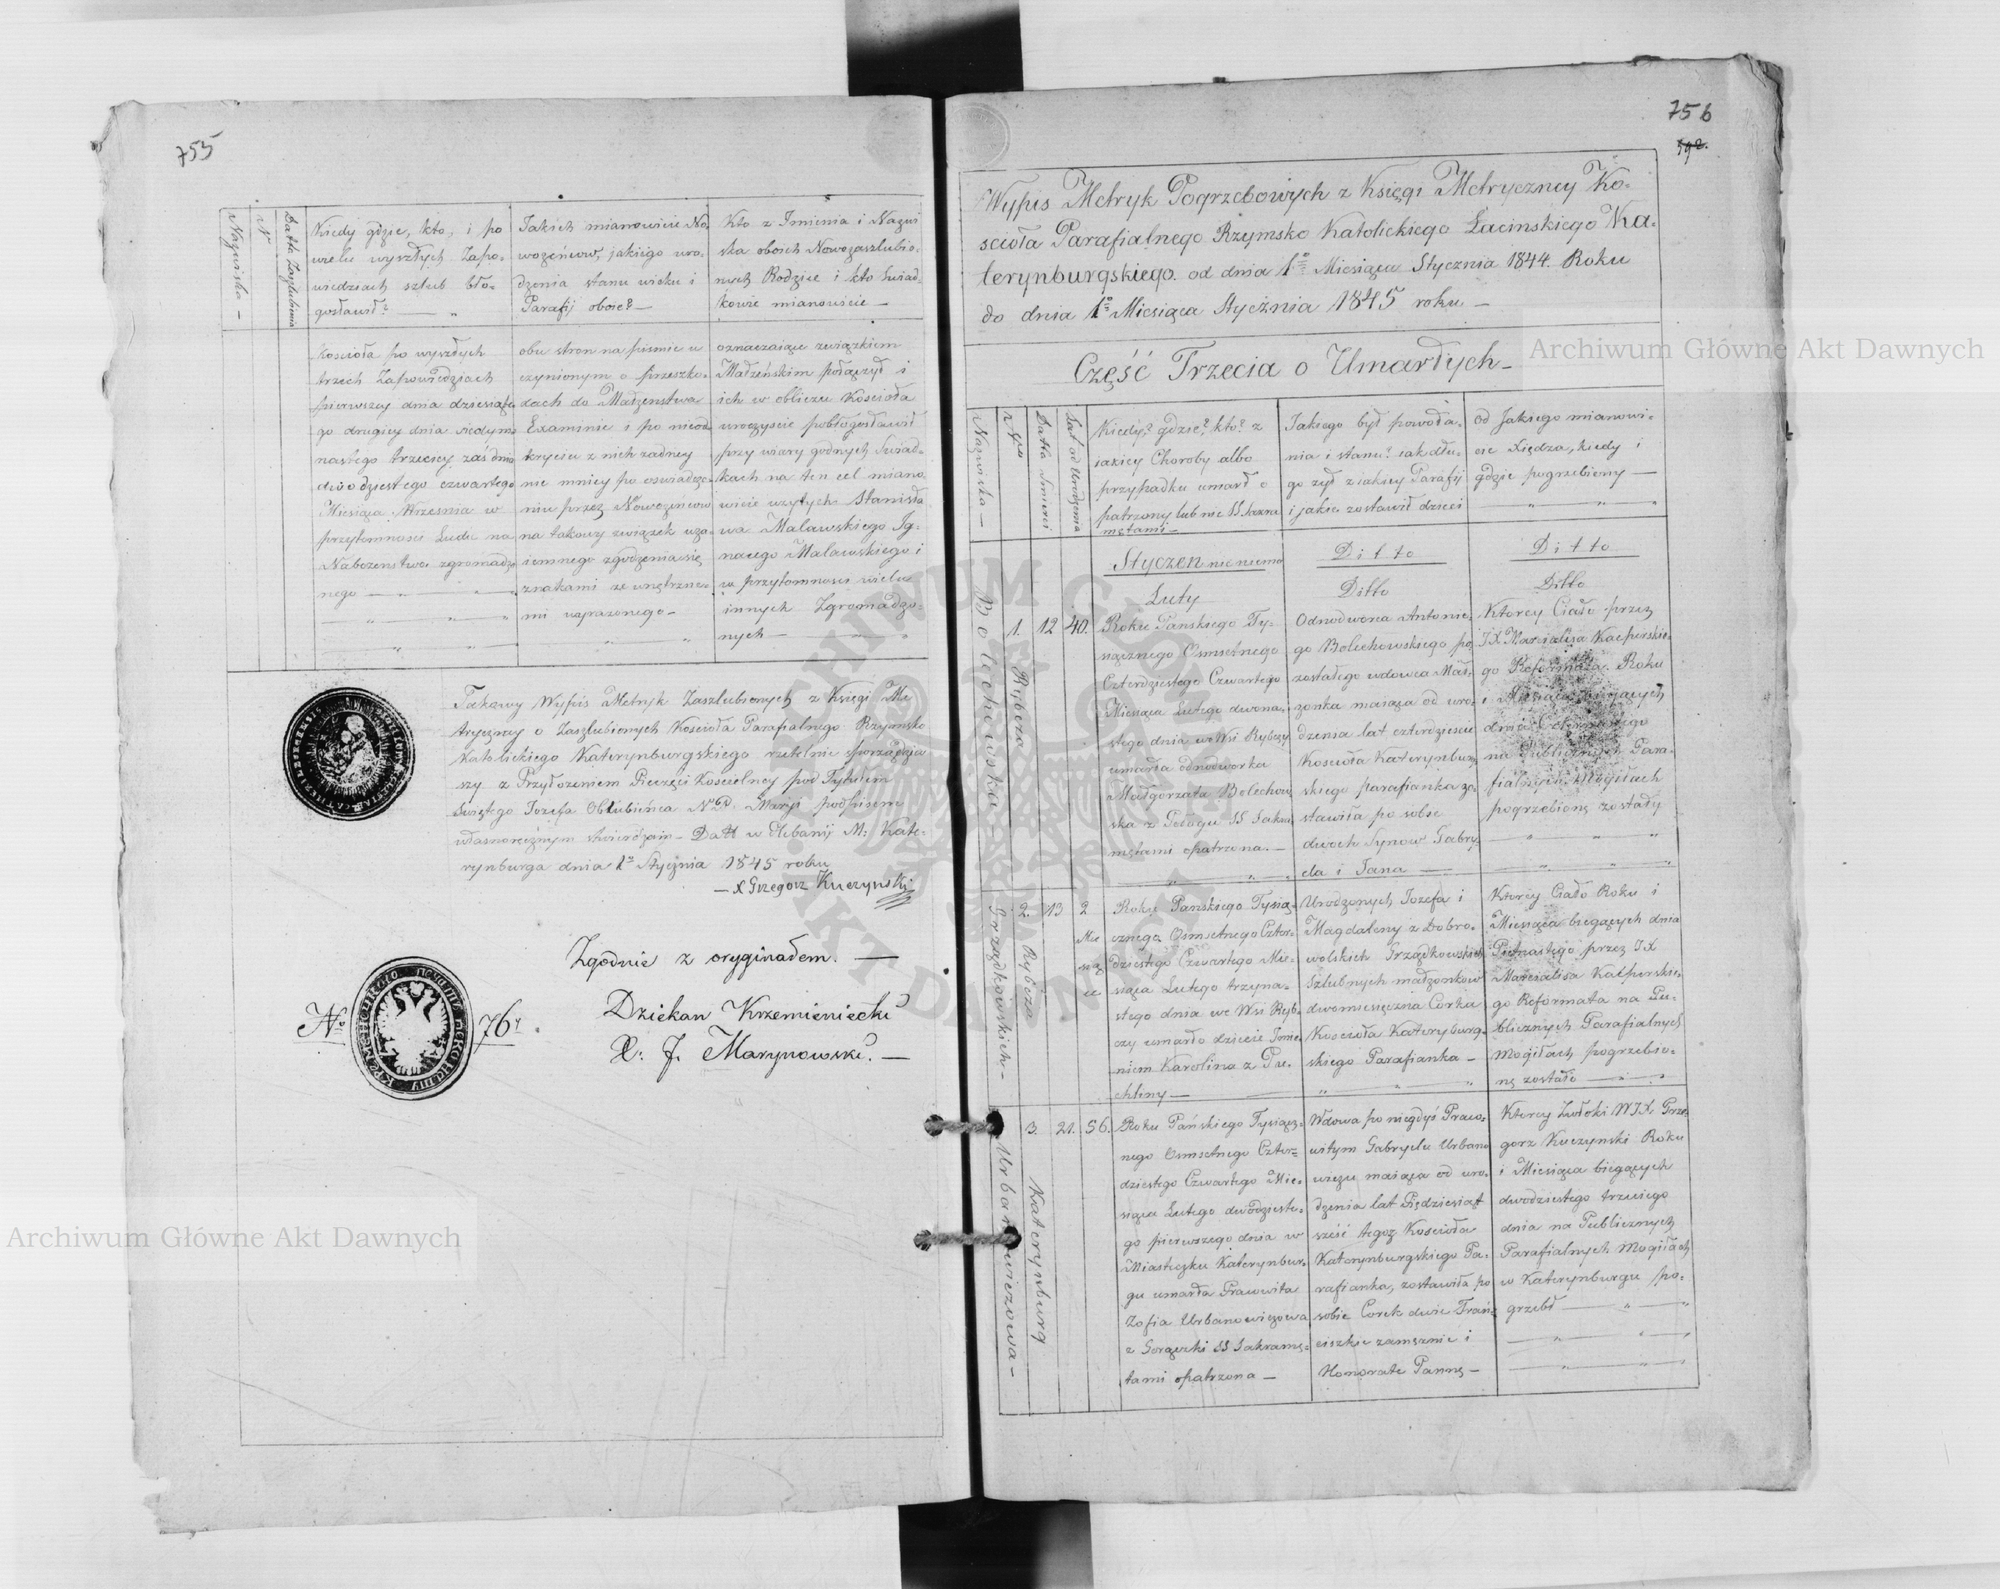 755
Nazwiska —
N
Datta Zaślubienia
Kiedy gdzie, kto, i po
wielu wyszłych Zapo-
wiedziach szlub bło-
gosławił? — „
Jakich mianowicie No-
wożeńców, jakiego uro-
dzenia stanu wieku i
Parafij oboie? —
Kto z Imienia i Nazwi
ska oboich Nowozaszlubio-
nych Rodzice i kto Swiad-
kowie mianowicie —
Kościoła po wyszłych
trzech Zapowiedziach
pierwszey dnia dziesiąte
go drugiey dnia siedym
nastego trzeciey zaś dnia
dwódziestego czwartego
Miesiąca Września w
przytomnosci Ludu na
Nabożenstwo zgromadzo
nego — „ — „
obu stron na pismie u
czynionym o przeszko-
dach do Małżenstwa
Examinie i po nieod
kryciu z nich zadney
nie mniey po oswiadcze
niu przez Nowożeńcow
na takowy związek wza-
iemnego zgodzenia się
znakami ze wnętrzne-
mi wyrazonego —
oznaczaiące związkiem
Małżeńskim połączył i
ich w obliczu Kościoła
uroczyscie pobłogosławił
przy wiary godnych Swiad-
kach na ten cel miano
wicie wzytych Stanisła
wa Malawskiego Ig-
nacego Malawskiego i
w przytomnosci wielu
innych Zgromadzo-
nych — „
Takowy Wypis Metryk Zaszlubionych z Księgi Me
tryczney o Zaszlubionych Kościoła Parafialnego Rzymsko
Katolickiego Katerynburgskiego rzetelnie sporządzia
ny z Przyłożeniem Pieczęci Koscielney pod Tytułem
Swiętego Jozefa Oblubieńca N. P. Maryi podpisem
własnoręcznym stwierdzam — Datt w Plebanij M: Kate-
rynburga dnia 1º Stycznia 1845 roku
— X Grzegorz Kuczynski
Zgodnie z oryginałem. —
Nº 764.
Dziekan Krzemieniecki
X: J. Marynowski. —
756
592.
Wypis Metryk Pogrzebowych z Księgi Metryczney Ko-
scioła Parafialnego Rzymsko Katolickiego Łacinskiego Ka-
terynburgskiego od dnia 1º Miesiąca Stycznia 1844. Roku
do dnia 1º Miesiąca Stycznia 1845 roku —
Część Trzecia o Umarłych —
Nazwiska —
Datta Smierci
Lat od Urodzenia
Kiedy? gdzie? kto? z
jakiey Choroby albo
przypadku umarł o
patrzony lub nie SS. Sakra
mętami —
Jakiego był powoła-
nia i stanu? iak dłu-
go żył z iakiey Parafij
i jakie zostawił dzieci
od Jakiego mianowi-
cie Xiędza, kiedy i
gdzie pogrzebiony —
Styczen nie niema
Ditto
Ditto
Luty
Ditto
Ditto
Bolechowska
Rybcza
1.
12
40.
Roku Panskiego Ty-
siącznego Osmsetnego
Czterdziestego Czwartego
Miesiąca Lutego dwona-
stego dnia we Wsi Rybczy
umarła odnodworka
Małgorzata Bolechow
ska z Połogu SS Sakra
mętami opatrzona. —
Odnodworca Antonie-
go Bolechowskiego po
zostałego wdowca Mał
zonka maiąca od uro-
dzenia lat czterdziescie
Koscioła Katerynbur-
skiego parafianka zo-
stawiła po sobie
dwoch Synow Gabry-
ela i Jana —
Ktorey Ciało przez
JX Marcialisa Kacperskie
go Reformata. Roku
i Miesiąca bieżących
dnia
na Publicznych Para-
fialnych Mogiłach
pogrzebione zostały
Grządkowskich —
Rybcza
2.
13
2
Mie
siąc
Roku Pańskiego Tysią-
cznego Osmsetnego Czter-
dziestego Czwartego Mie-
siąca Lutego trzyna-
stego dnia we Wsi Ryb-
czy umarło dziecie Imie
niem Karolina z Pu-
chliny —
Urodzonych Jozefa i
Magdaleny z Dobro-
wolskich Grządkowskich
Szlubnych małzonkow
dwomiesięczna Corka
Kościoła Kateryburg-
skiego Parafianka —
Ktorey Ciało Roku i
Miesiąca bieżących dnia
Piętnastego przez JX
Marcialisa Kacperskie-
go Reformata na Pu-
blicznych Parafialnych
Mogiłach pogrzebio-
ne zostało —
Urbanowiczowa —
Katerynburg
3.
21.
56.
Roku Pańskiego Tysiącz-
nego Osmsetnego Czter-
dziestego Czwartego Mie-
siąca Lutego dwódzieste-
go pierwszego dnia w
Miasteczku Katerynbur-
gu umarła Pracowita
Zofia Urbanowiczowa
z Gorączki SS Sakramę-
tami opatrzona —
Wdowa po niegdyś Praco-
witym Gabryelu Urbano
wiczu maiąca od uro-
dzenia lat Pięędziesiąt
sześć tegoż Kościoła
Katerynburgskiego Pa-
rafianka, zostawiła po
sobie Corek dwie Fran-
ciszkie zamężnie i
Honorate Pannę —
Ktorey Zwłoki WJX. Grze-
gorz Kuczynski Roku
i Miesiąca bieżących
dwodziestego trzeciego
dnia na Publicznych
Parafialnych Mogiłach
w Katerynburgu po-
grzebł —
Archiwum Główne Akt Dawnych
Archiwum Główne Akt Dawnych